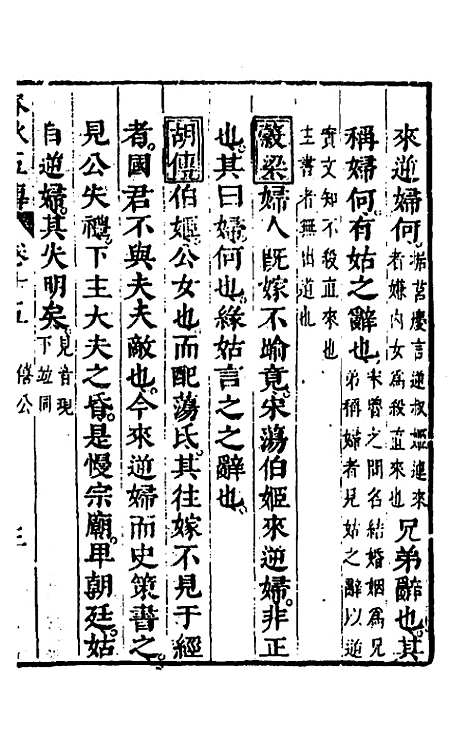 來逆婦何據莒慶言逆叔姬連來者嫌内女爲殺直來也兄弟辭也其
稱婦何有姑之辭也宋魯之間名結婚姻爲兄弟稱婦者見姑之辭以逆
實文知不殺直來也主書者無出道也
穀梁婦人旣嫁不踰竟宋蕩伯姬來逆婦非正
也其曰婦何也緣姑言之之辭也
胡傳伯姬公女也而配蕩氏其往嫁不見于經
者國君不與夫夫敵也今來逆婦而史策書之
見公失禮下主大夫之昏是慢宗廟卑朝廷姑
自逆婦其失明矣見音現下並同
春秋五傳 卷十五 僖公 三